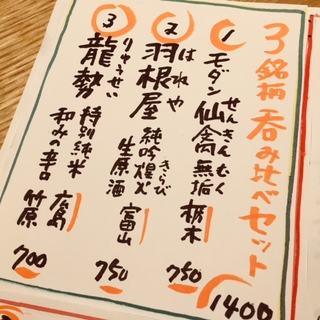 3銘柄呑み比べセット
1400
①
モダン仙禽無垢
せんきんむく
栃木
750
②
羽根屋
はねや
純吟煌火
きらび
生原酒
富山
750
③
龍勢
りゅうせい
特別純米
和みの辛口
広島
竹原
700